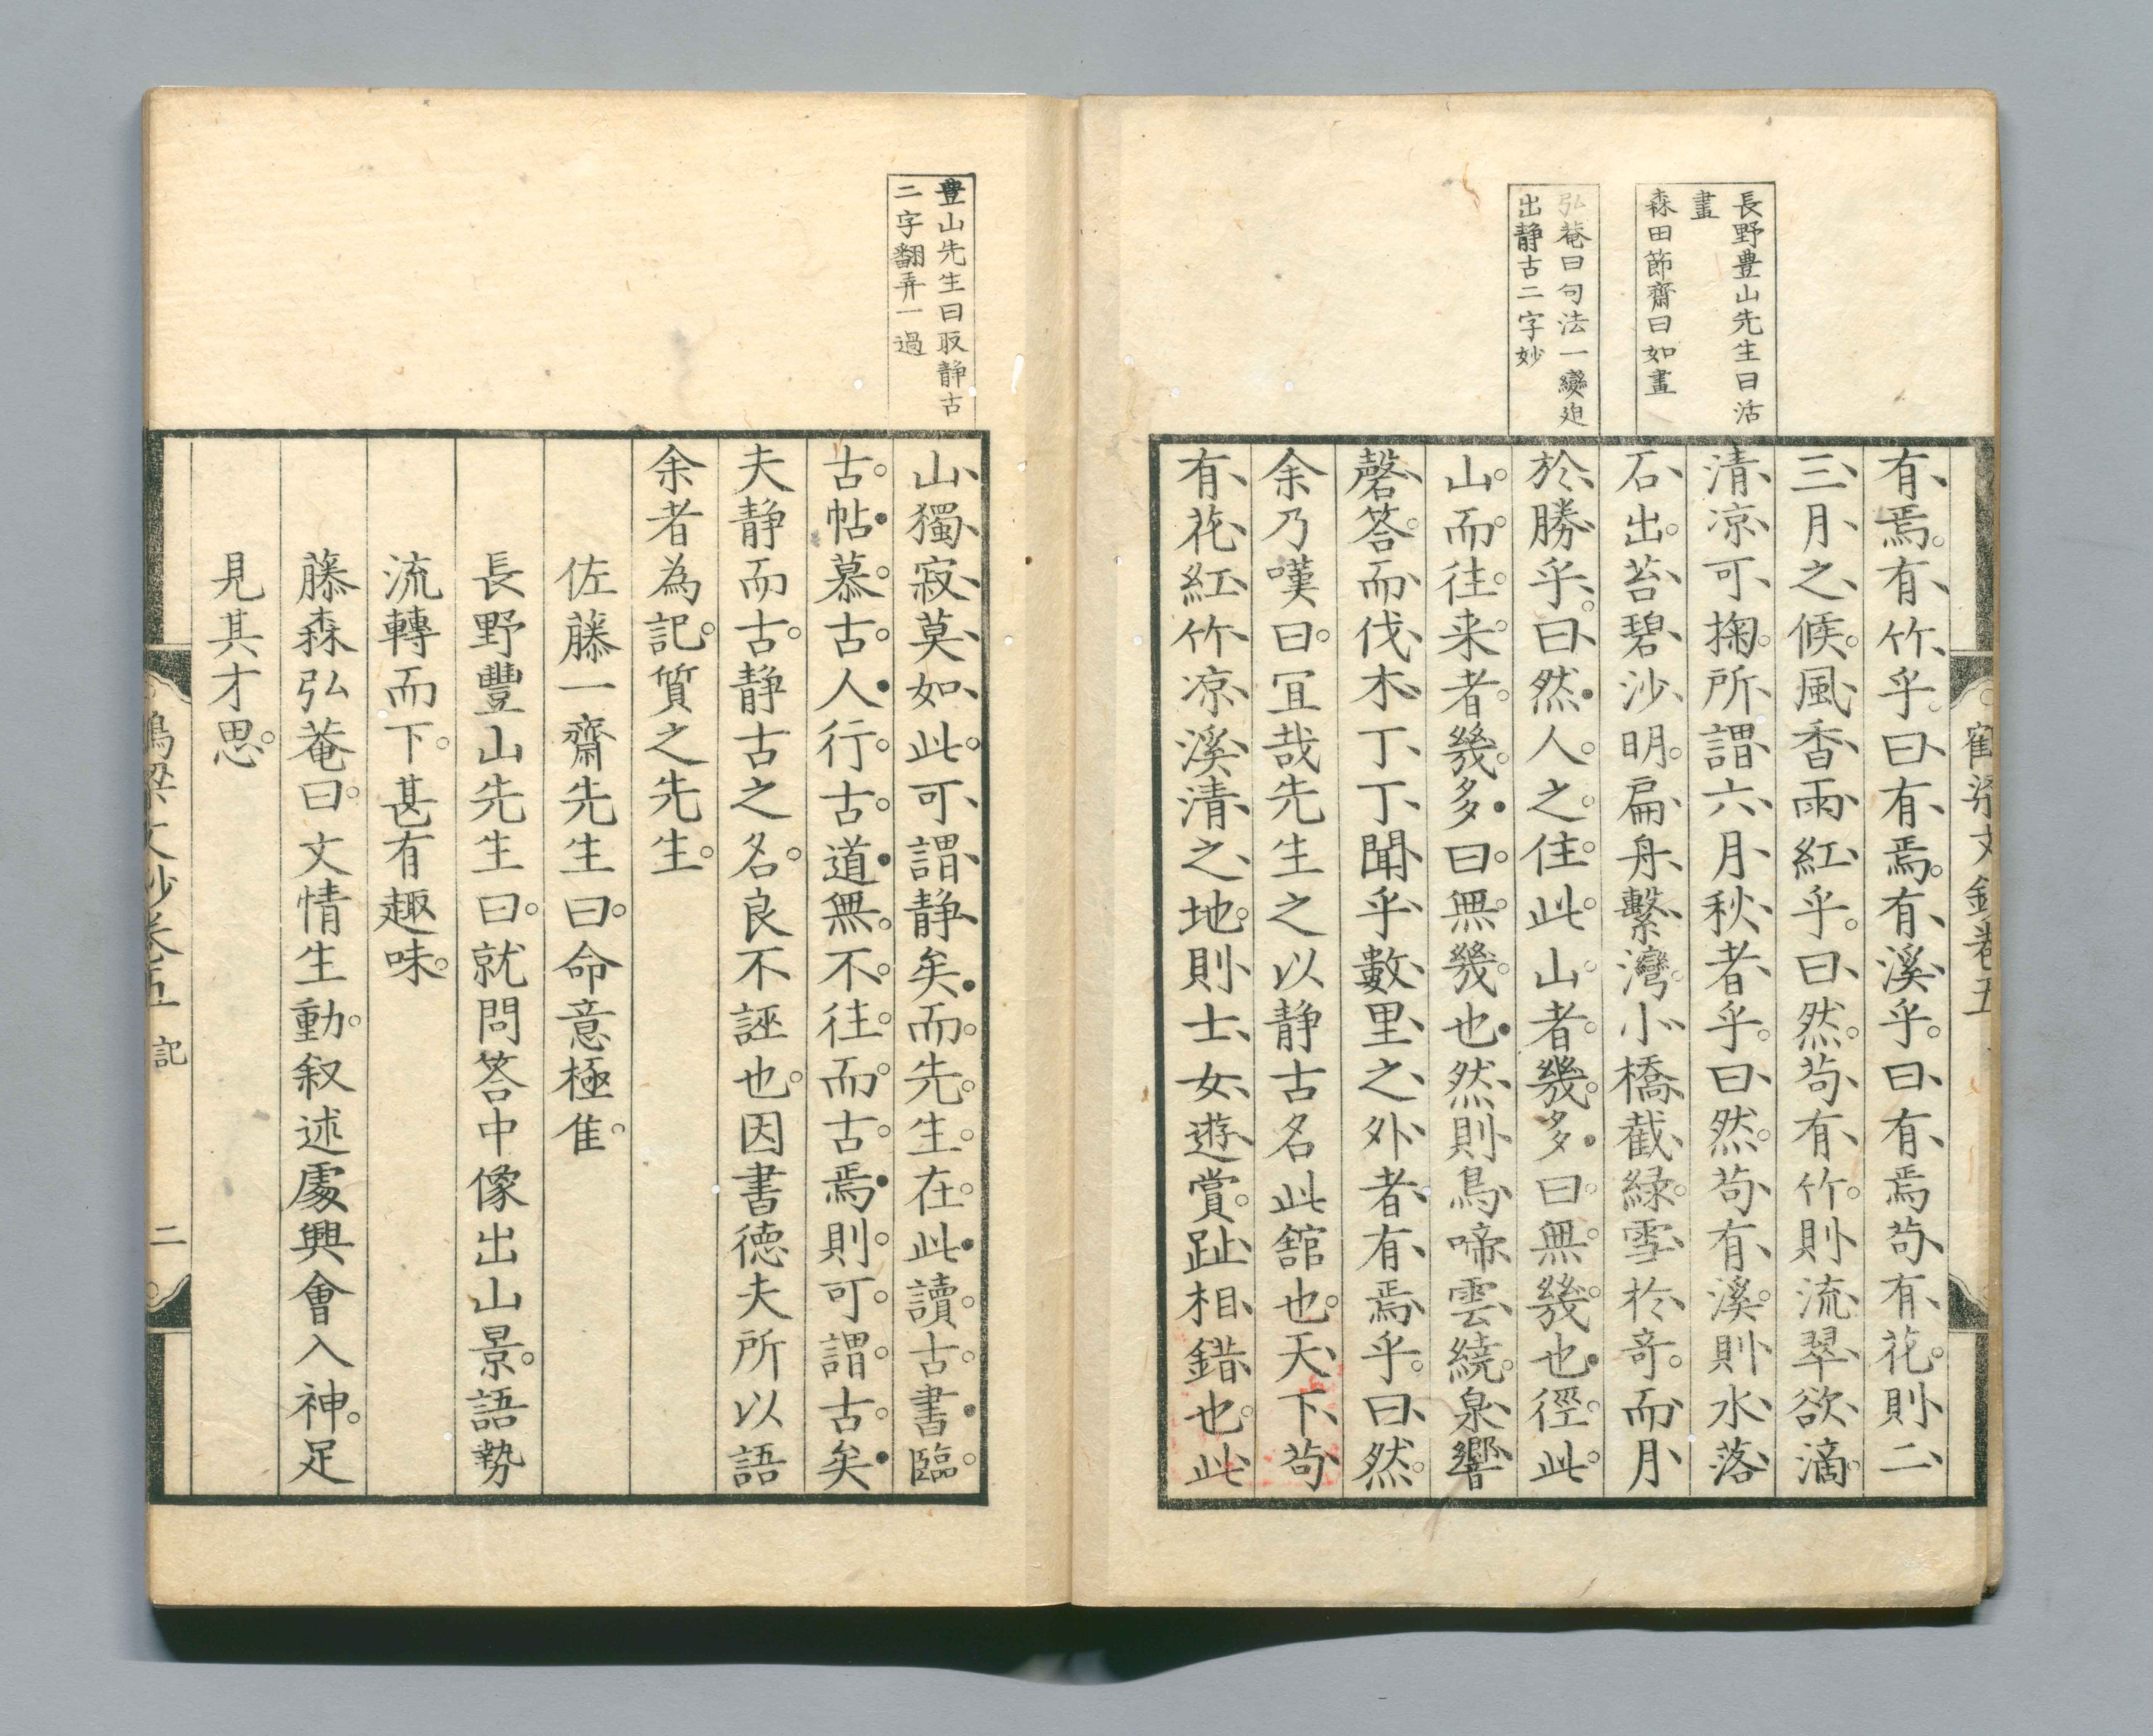 長野豊山先生曰活
畫
森田節齋曰如畫
弘菴曰句法一變迫
出静古二字妙
有焉有竹乎曰有焉有溪乎曰有焉苟有花則二
三月之候風香雨紅乎曰然苟有竹則流翠欲滴
清凉可掬所謂六月秋者乎曰然苟有溪則水落
石出苔碧沙明扁舟繫灣小橋截緑雪於奇而月
於勝乎曰然人之住此山者幾多曰無幾也徑此
山而往来者幾多曰無幾也然則鳥啼雲繞泉響
磬答而伐木丁丁聞乎數里之外者有焉乎曰然
余乃嘆曰冝哉先生之以静古名此舘也天下苟
有花紅竹凉溪清之地則士女遊賞趾相錯也此
豊山先生曰取静古
二字翻弄一過
山獨寂莫如此可謂静矣而先生在此讀古書臨
古帖慕古人行古道無不往而古焉則可謂古矣
夫静而古静古之名良不誣也因書德夫所以語
余者為記質之先生
佐藤一齋先生曰命意極隹
長野豐山先生曰就問答中像出山景語勢
流轉而下甚有趣味
藤森弘菴曰文情生動叙述處興會入神足
見其才思
文鈔卷五 記 二